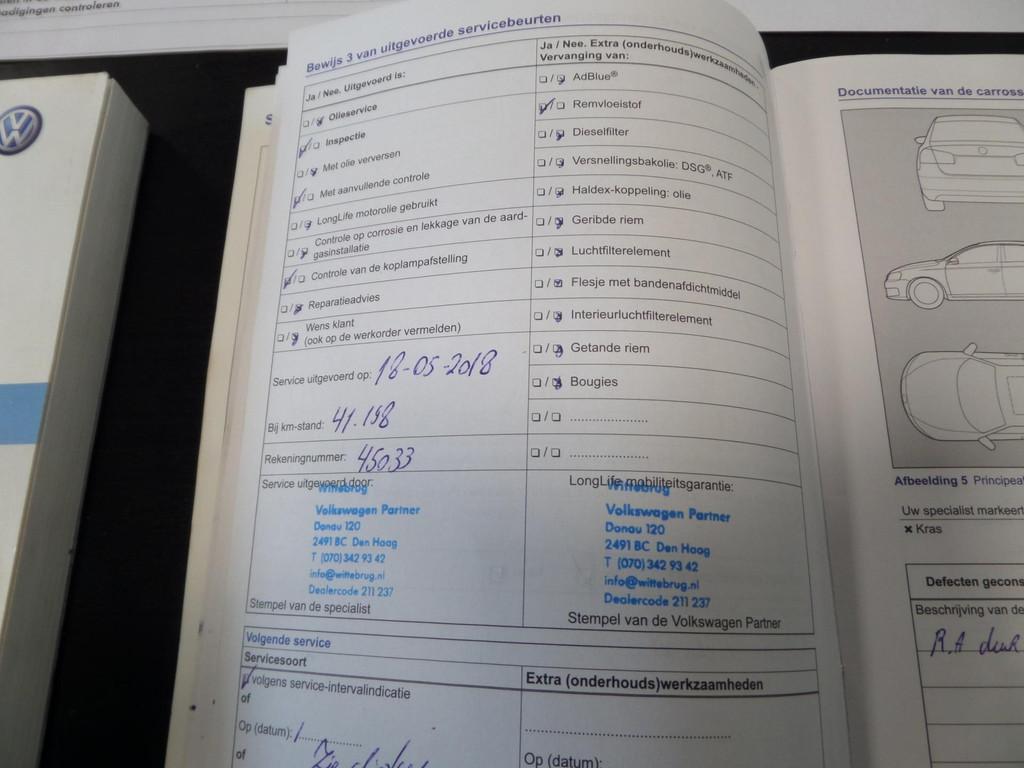 adigingen controleren
Bewijs 3 van uitgevoerde servicebeurten
Ja / Nee. Uitgevoerd is:
Olieservice
Inspectie
Met olie verversen
Met aanvullende controle
LongLife motorolie gebruikt
Controle op corrosie en lekkage van de aard-
gasinstallatie
Controle van de koplampafstelling
Reparatieadvies
Wens klant
(ook op de werkorder vermelden)
Service uitgevoerd op: 18-05-2018
Bij km-stand: 41.198
Rekeningnummer: 45033
Service uitgevoerd door:
Wittebrug
Volkswagen Partner
Donau 120
2491 BC Den Haag
T (070) 342 93 42
info@wittebrug.nl
Dealercode 211 237
Stempel van de specialist
Ja / Nee. Extra (onderhouds)werkzaamheden -
Vervanging van:
AdBlue®
Remvloeistof
Dieselfilter
Versnellingsbakolie: DSG®, ATF
Haldex-koppeling: olie
Geribde riem
Luchtfilterelement
Flesje met bandenafdichtmiddel
Interieurluchtfilterelement
Getande riem
Bougies
LongLife mobiliteitsgarantie:
Wittebrug
Volkswagen Partner
Donau 120
2491 BC Den Haag
T (070) 342 93 42
info@wittebrug.nl
Dealercode 211 237
Stempel van de Volkswagen Partner
Volgende service
Servicesoort
volgens service-intervalindicatie
of
Op (datum):
of
Extra (onderhouds)werkzaamheden
Op (datum):
Documentatie van de carross
Afbeelding 5 Principeaf
Uw specialist markeert
× Kras
Defecten gecons
Beschrijving van de
R.A deuk